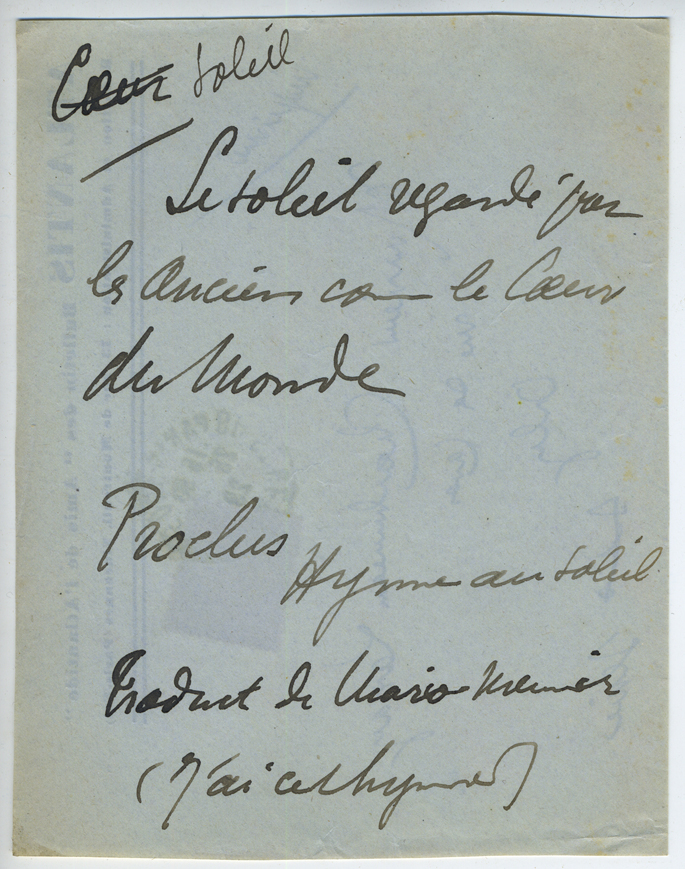 Cœur Soleil
Le soleil regardé par
les Anciens com le Cœur
du Monde
Proclus
Hymne au soleil
Traduct de Mario Meunier
(J'ai cet hymne)